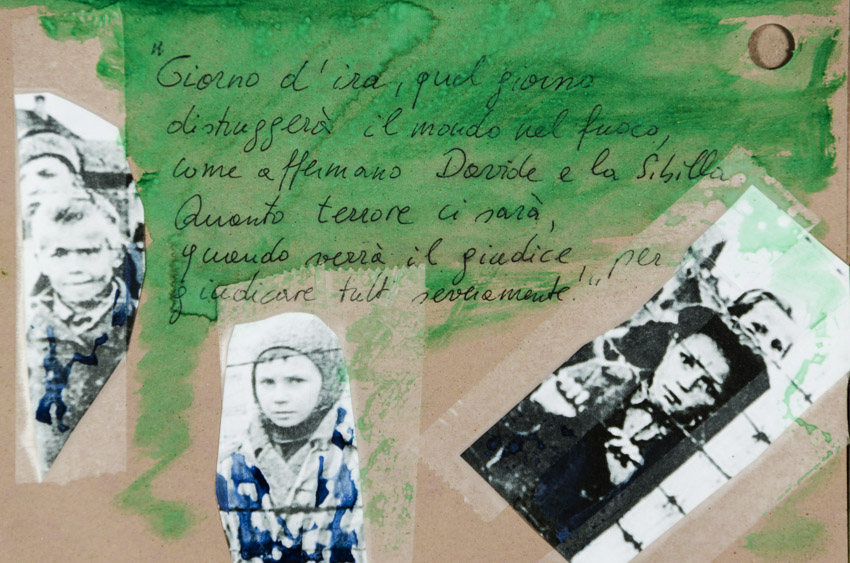 "Giorno d'ira, quel giorno
distruggerà il mondo nel fuoco,
come affermano Davide e la Sibilla
Quanto terrore ci sarà,
quando verrà il giudice, per
giudicare tutti severamente!"